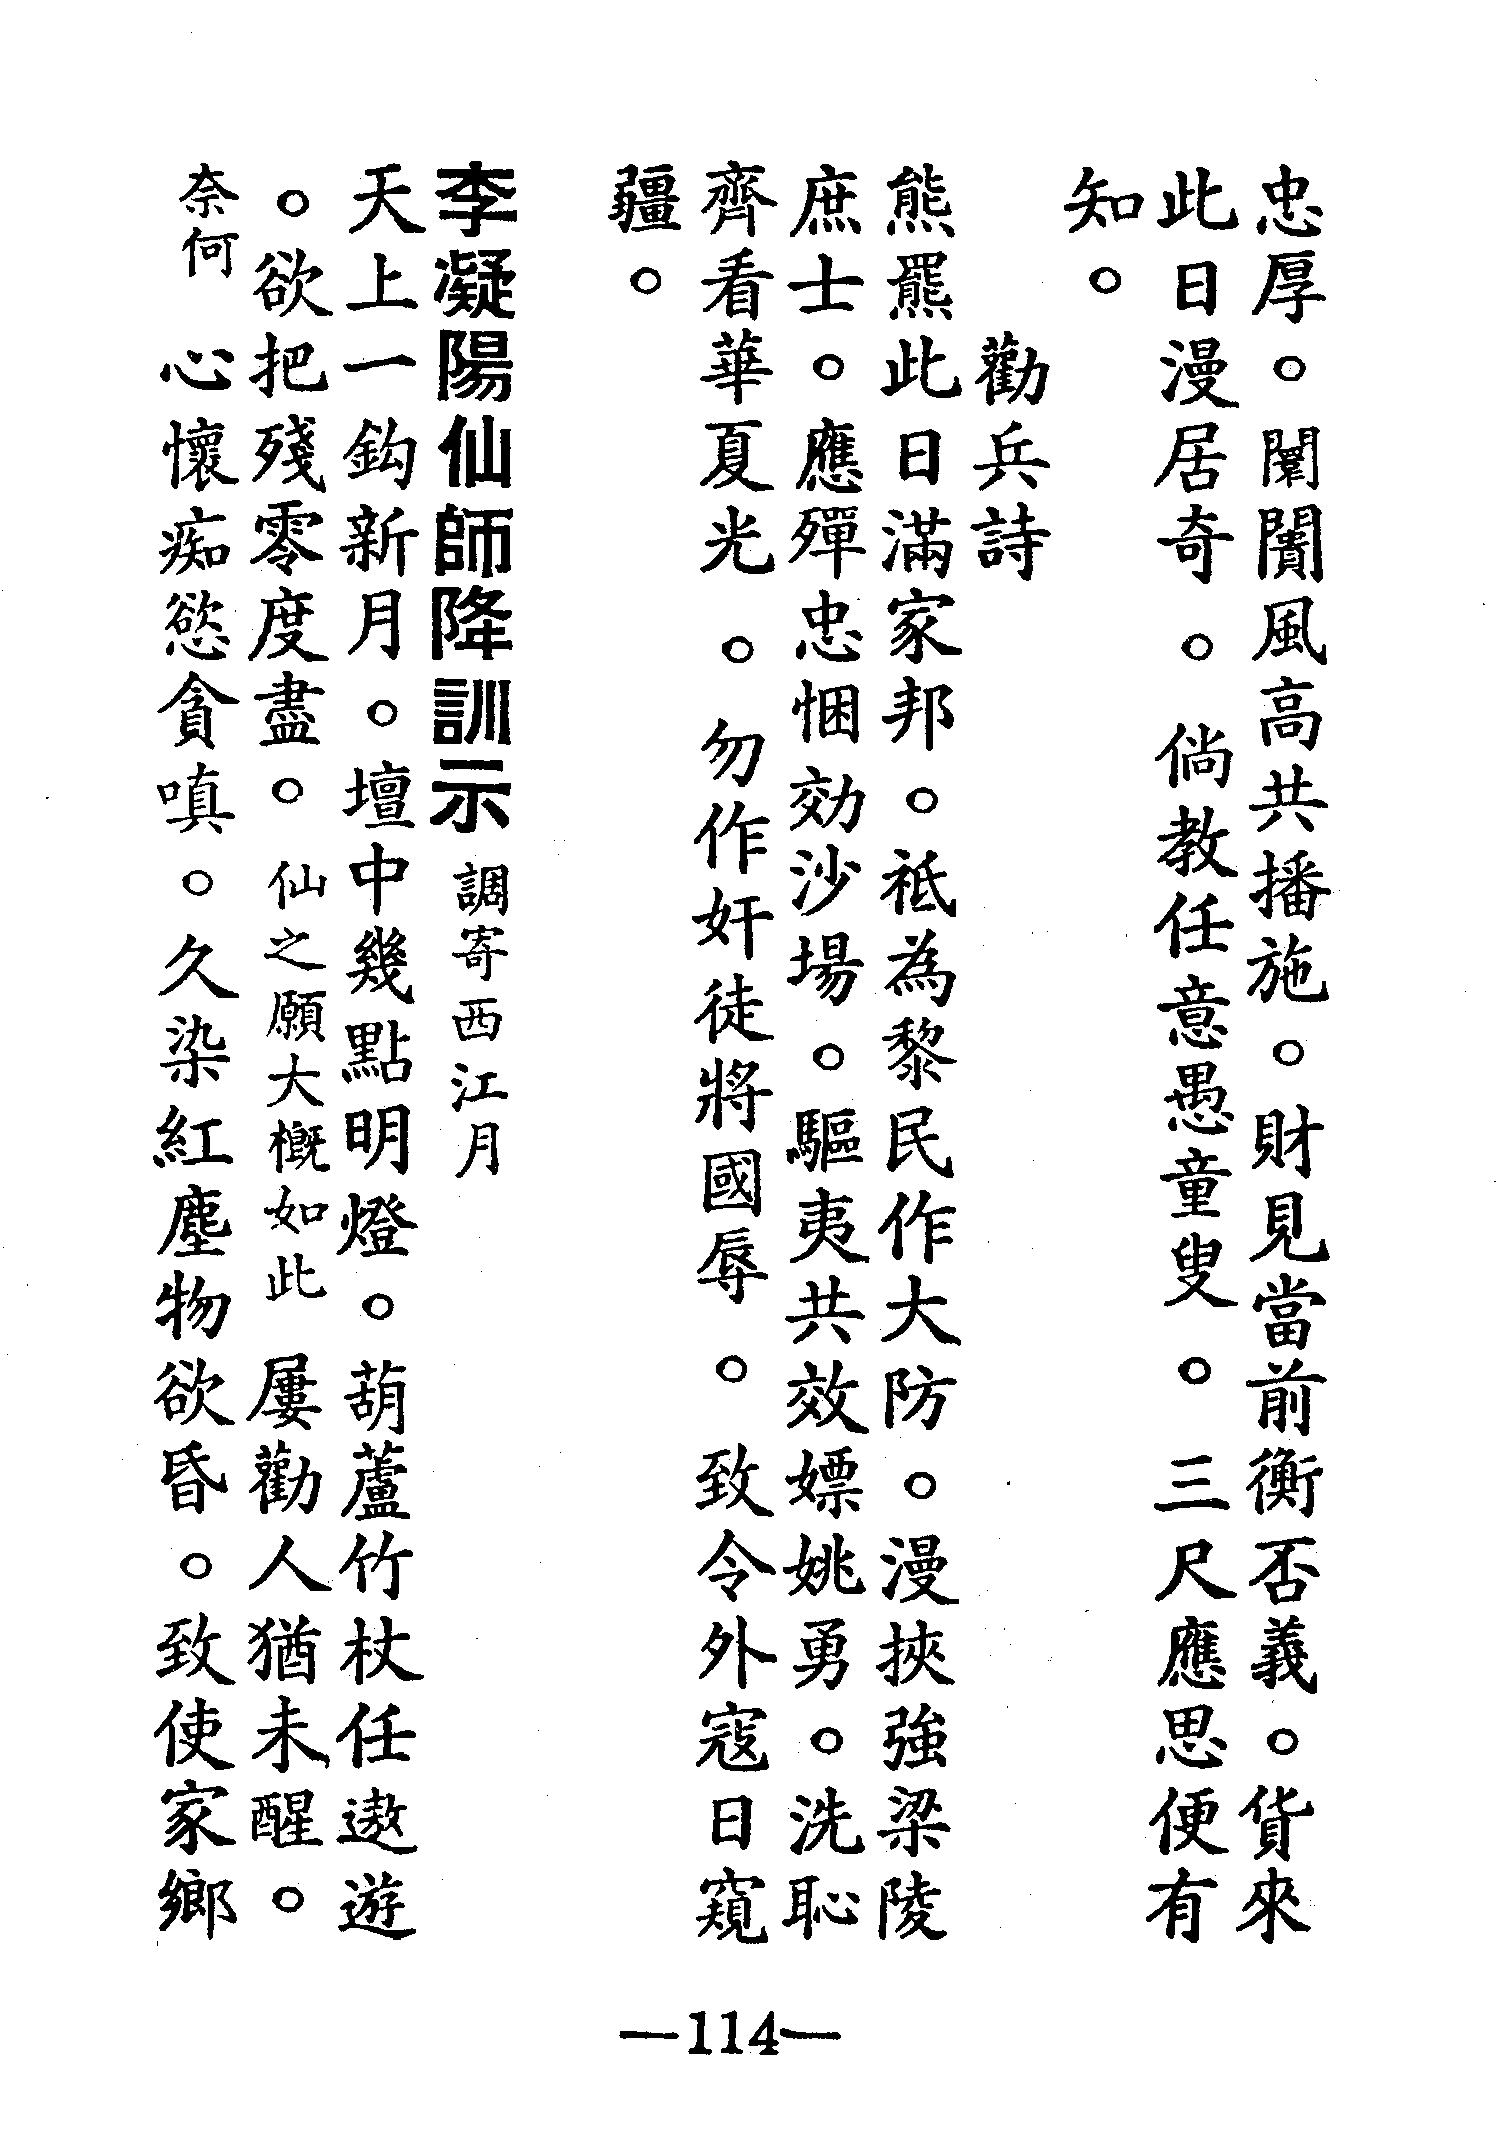 忠厚。闤闠風高共播施。財見當前衡否義。貨來
此日漫居奇。倘教任意愚童叟。三尺應思便有
知。
勸兵詩
熊羆此日滿家邦。祗為黎民作大防。漫挾強梁陵
庶士。應殫忠悃効沙場。驅夷共效嫖姚勇。洗恥
齊看華夏光。勿作奸徒將國辱。致令外寇日窺
疆。
李凝陽仙師降訓示 調寄西江月
天上一鈎新月。壇中幾點明燈。葫蘆竹杖任遨遊
。欲把殘零度盡。仙之願大概如此 屢勸人猶未醒。
奈何 心懷痴慾貪嗔。久染紅塵物欲昏。致使家鄉
—114—